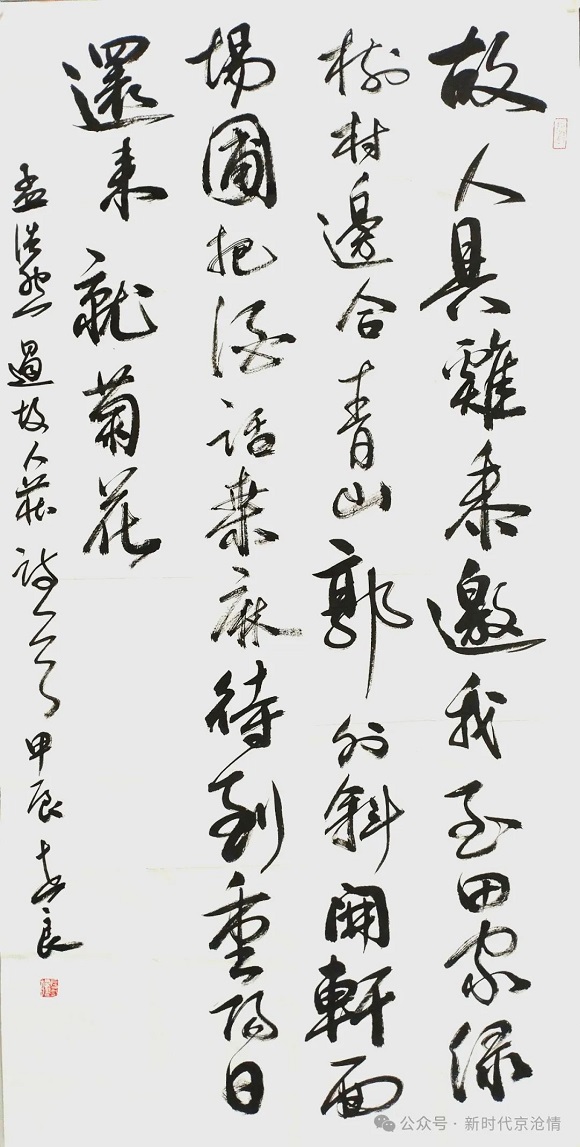 故人具雞黍邀我至田家綠
樹村邊合青山郭外斜開軒面
場圃把酒話桑麻待到重陽日
還來就菊花
孟浩然過故人莊詩一首甲辰志良
公众号·新时代京沧情